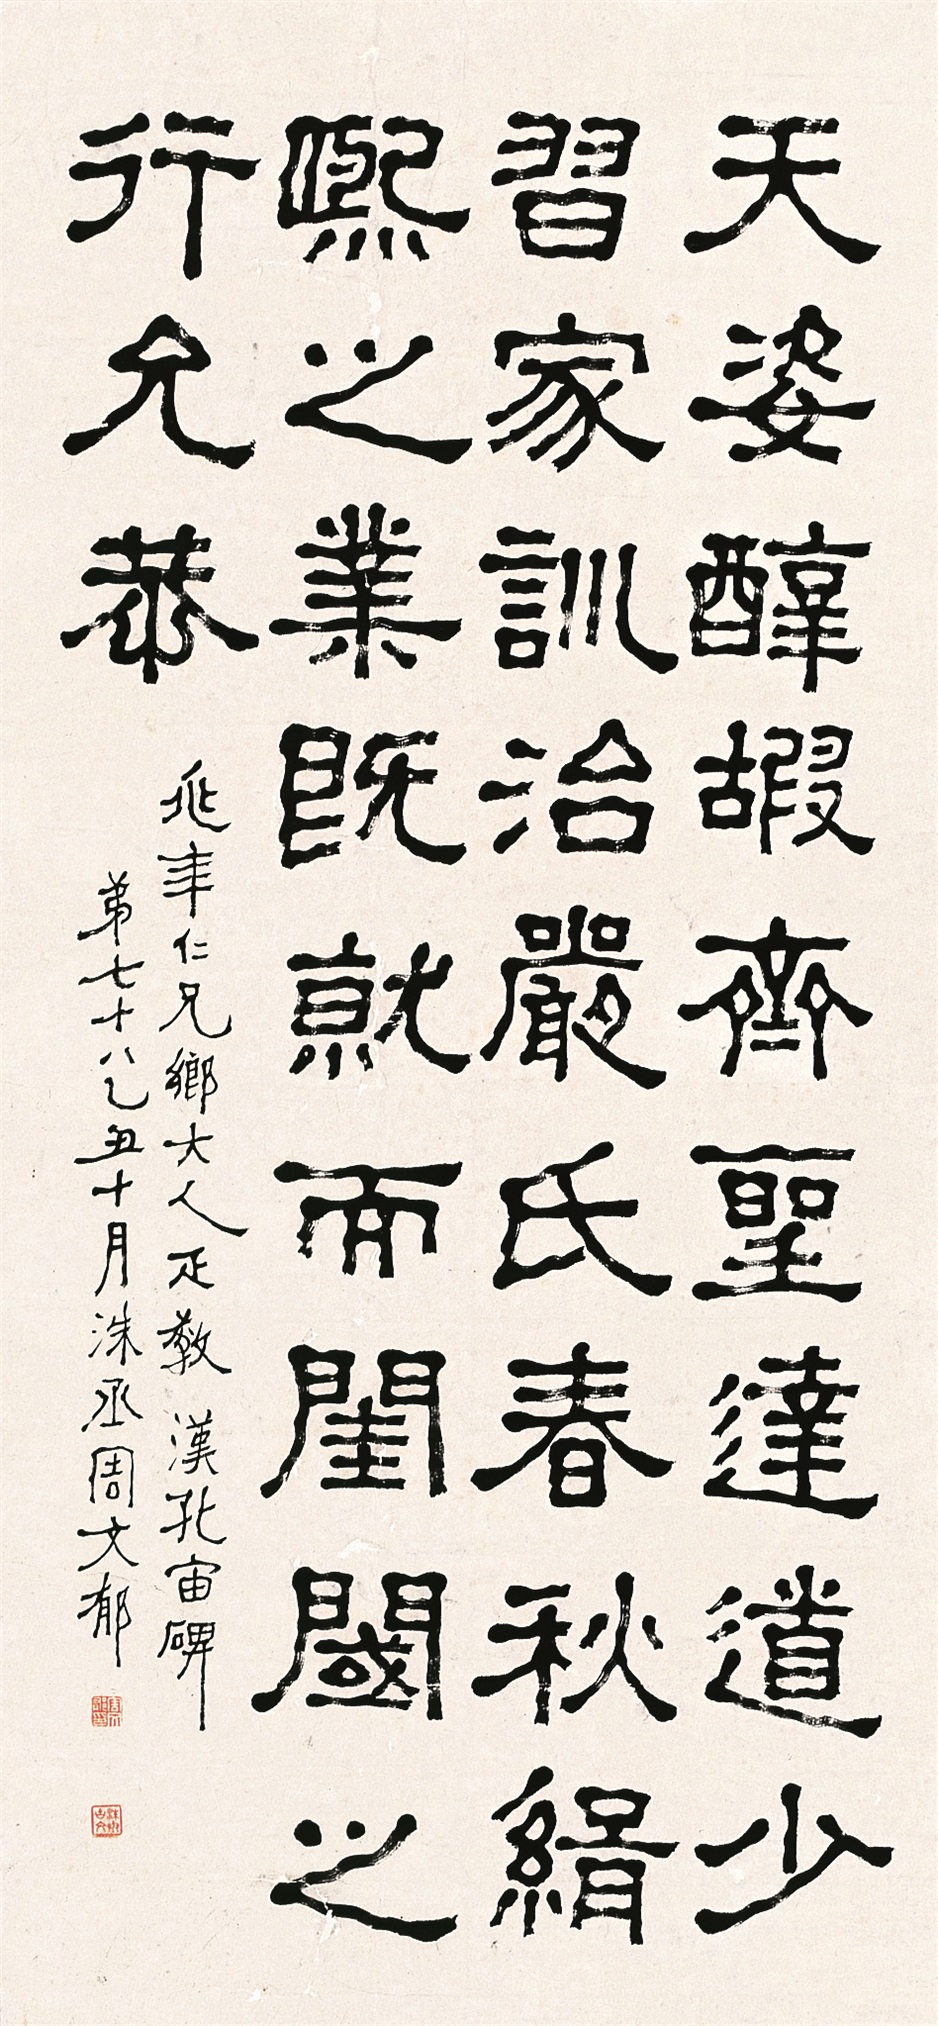 天姿醇嘏齊聖達道少
習家訓治嚴氏春秋緝
熙之業既就而閨閾之
行允恭
兆年仁兄鄉大人疋教 漢孔宙碑
弟七十八乙丑十月洙丞周文郁